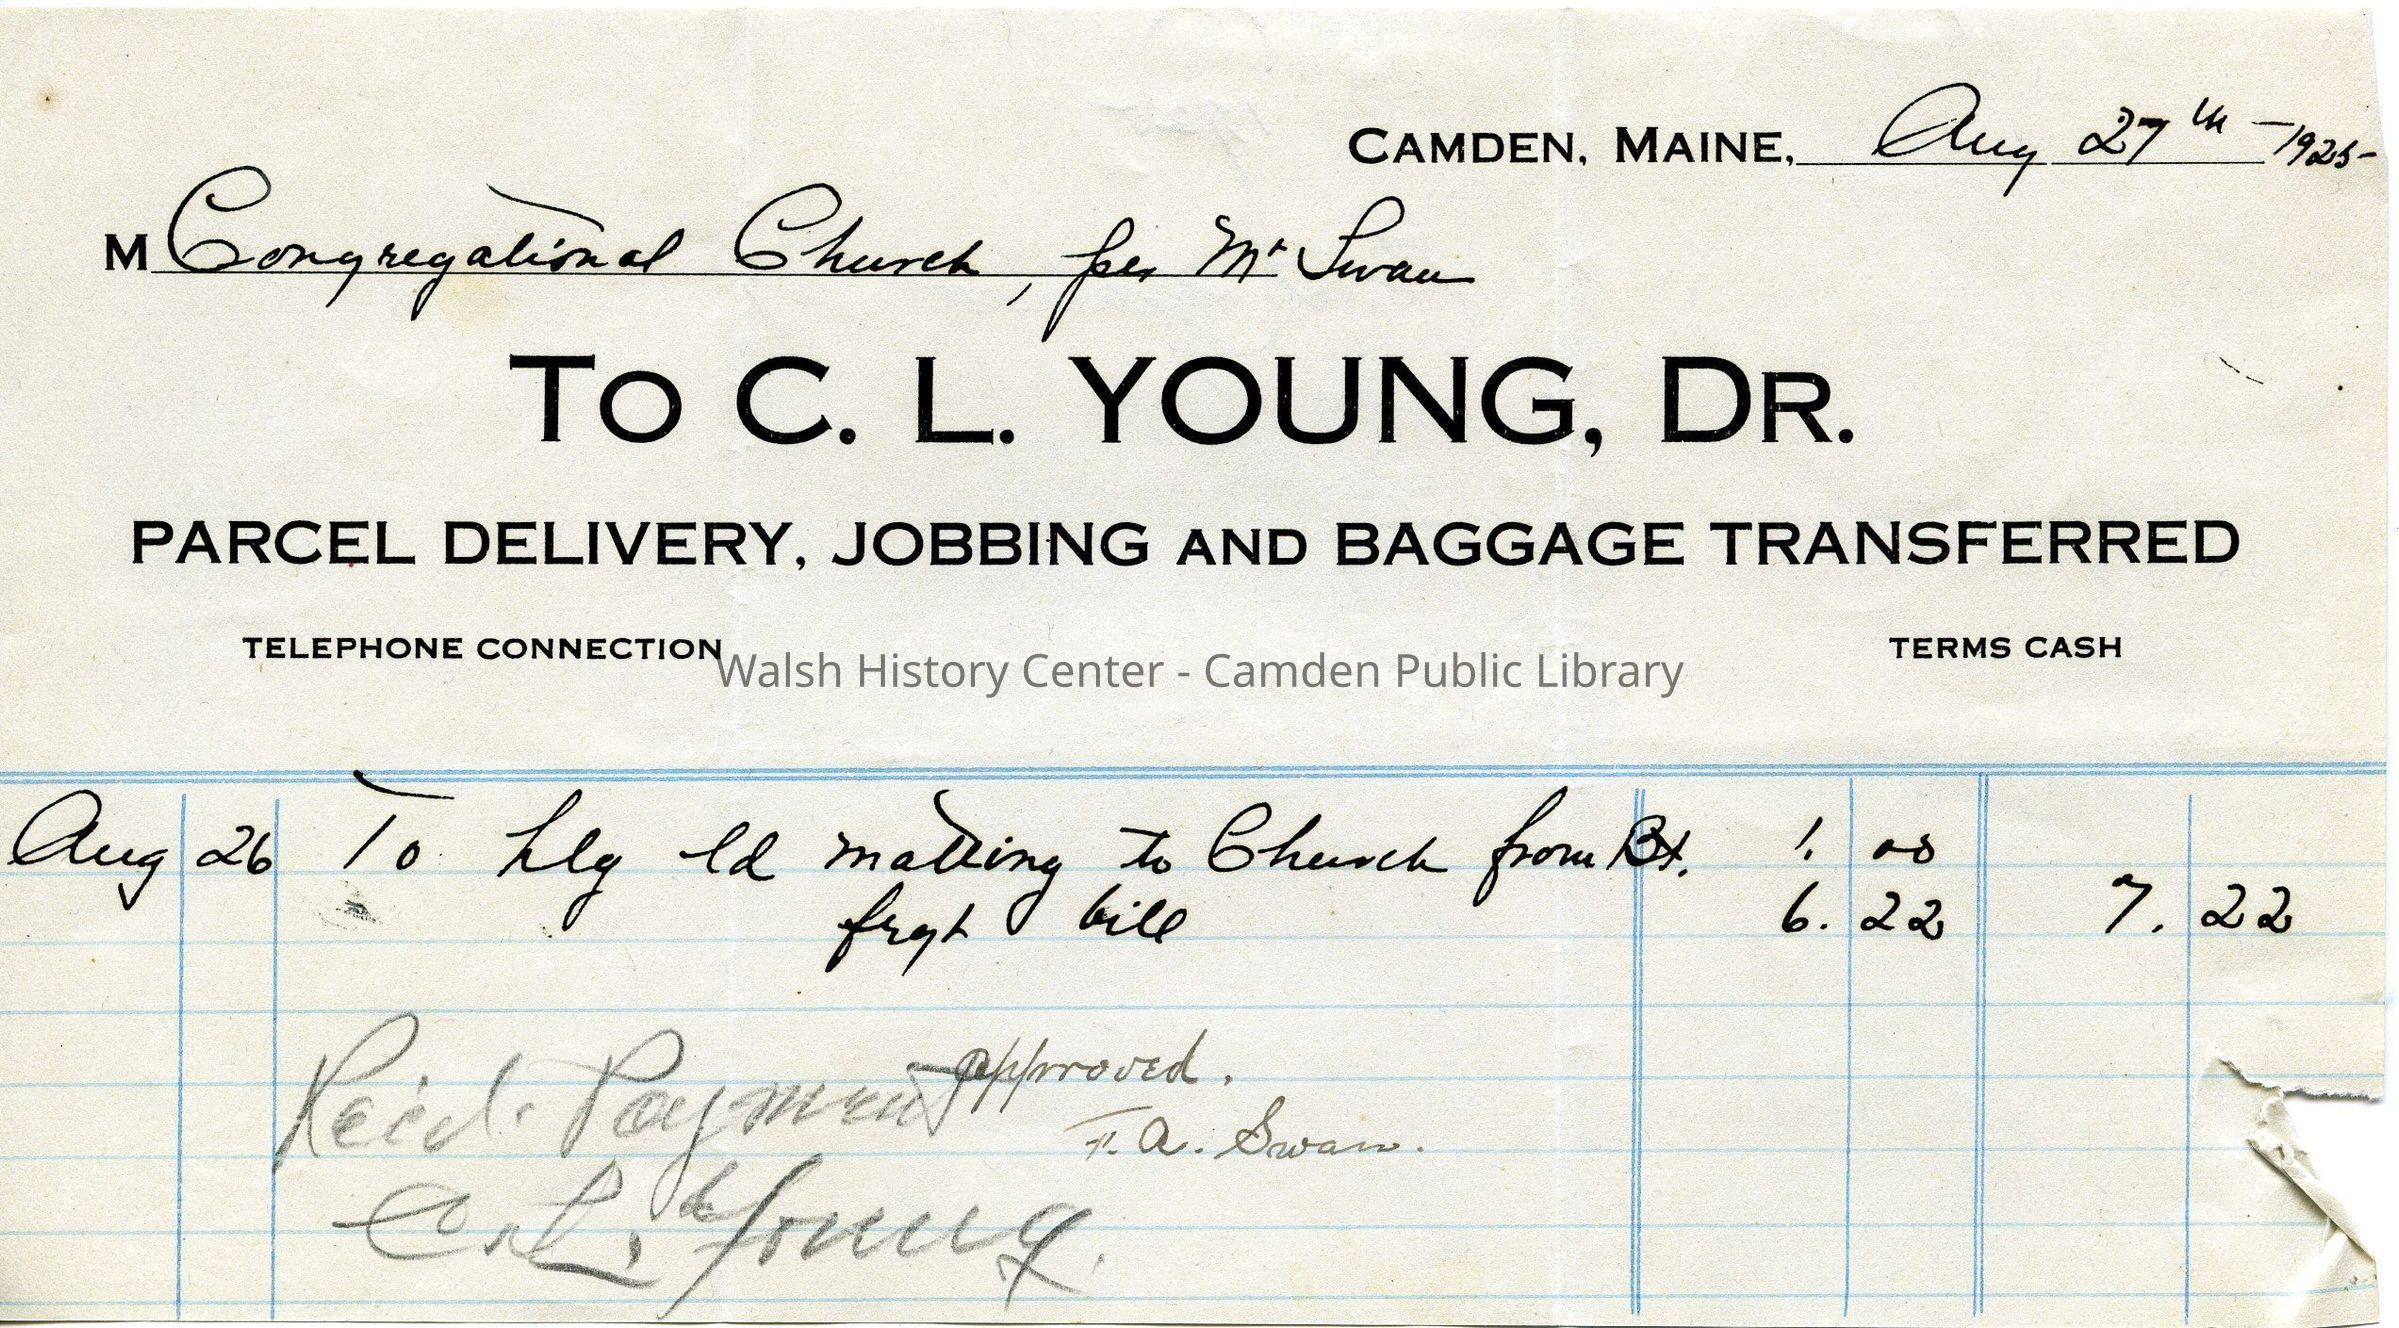 CAMDEN, MAINE, Aug 27th 1925
M Congregational Church, per Mr Swan
TO C. L. YOUNG, DR.
PARCEL DELIVERY, JOBBING AND BAGGAGE TRANSFERRED
TELEPHONE CONNECTION
TERMS CASH
Walsh History Center - Camden Public Library
Aug 26 To hlg ld matting to Church from Bt. 1. 00
frgt bill 6. 22 7. 22
Rec'd. Payment
approved.
F. A. Swan.
C. L. Young.